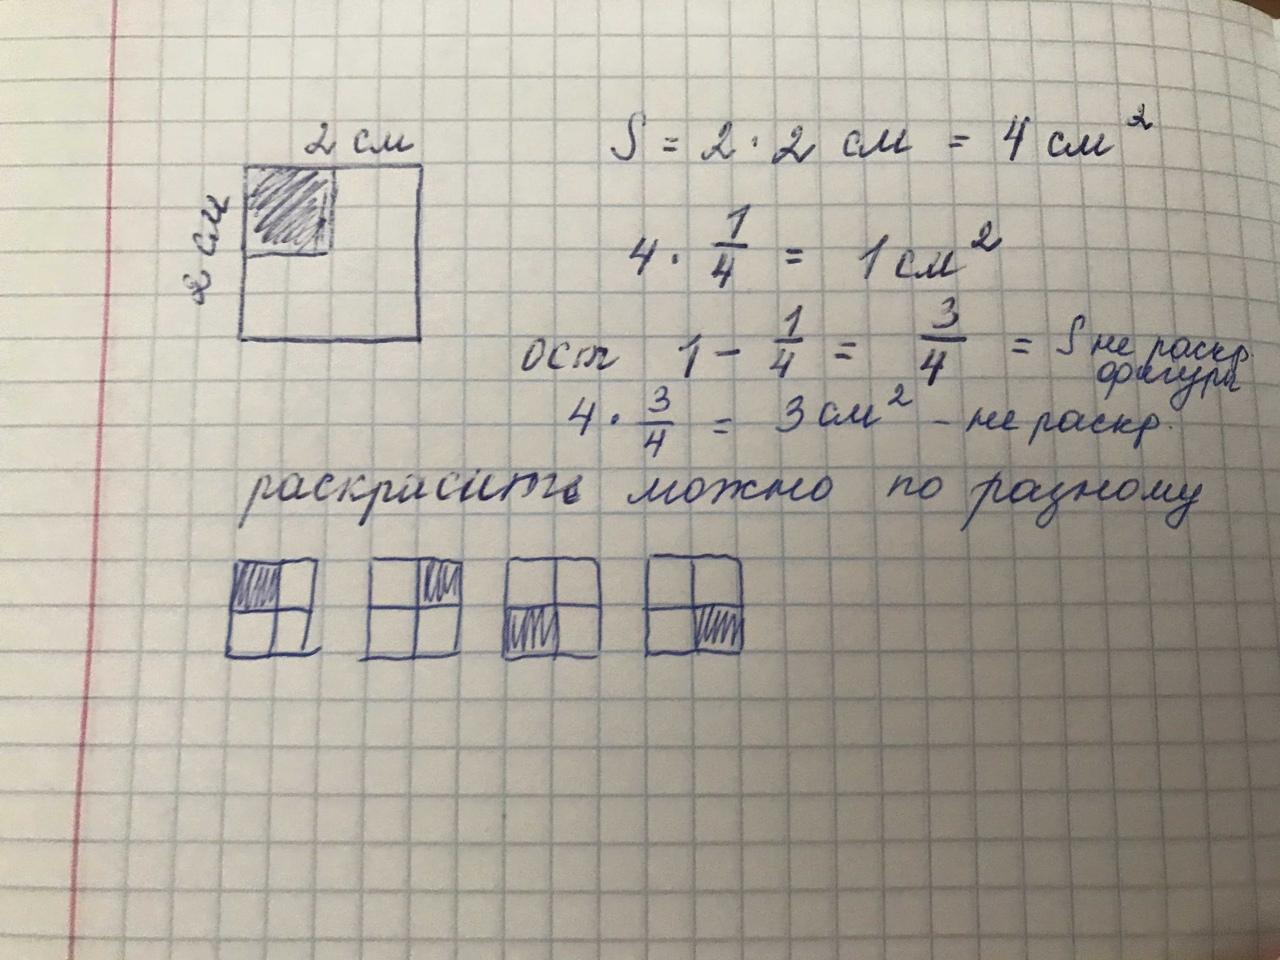 2 см
2 см
S = 2 · 2 см = 4 см²
4 · 1/4 = 1 см²
ост 1 - 1/4 = 3/4 = S не раскр. фигуры
4 · 3/4 = 3 см² - не раскр.
раскрасить можно по разному